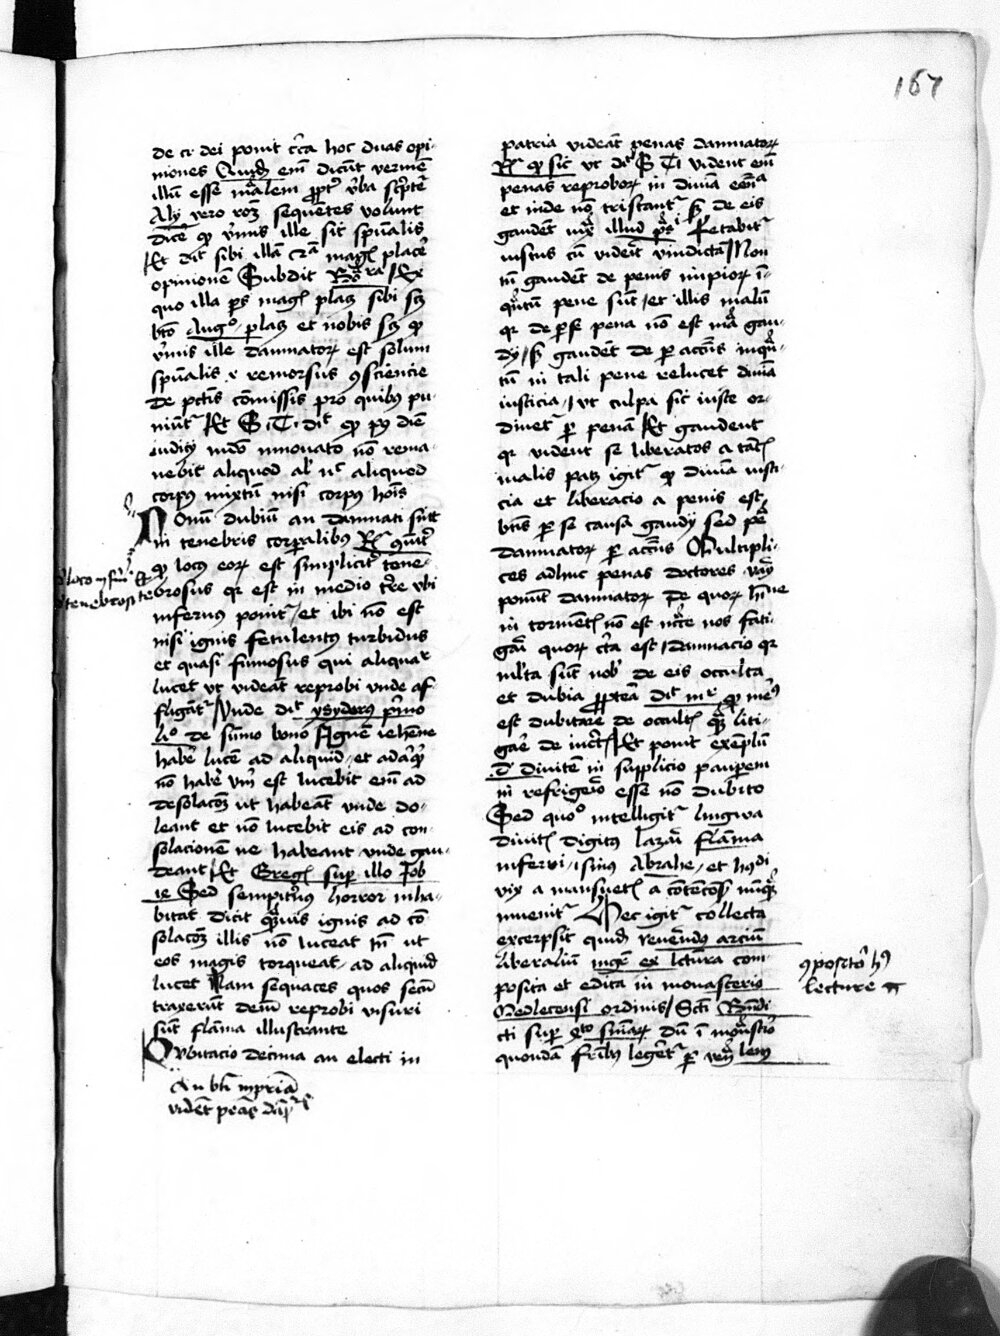 167
de ci dei ponit circa hoc duas opi-
niones Quidam enim dicunt vermem
illum esse materialem propter verba scripture
Alii vero racionem sequentes volunt
dicere quod vermis ille sit spiritualis
Et dicit sibi illam magis placere
opinionem Subdit Bonaventura Ex
quo illa pars magis placuit sibi scilicet
beato Augo placet et nobis scilicet quod
vermis ille damnatorum est solum
spiritualis et remorsus consciencie
de peccatis commissis pro quibus pu-
niuntur Et S. T. dicit quod post diem
iudicii mundo innovato non rema-
nebit aliquod animal vel aliquod
corpus mixtum nisi corpus hominis
Nonum dubium an damnati sunt
in tenebris corporalibus Respondetur communiter
quod locus eorum est simpliciter tene-
brosus quia est in medio terre ubi
infernus ponitur et ibi non est
nisi ignis fetulentus turbidus
et quasi fumosus qui aliqualiter
lucet ut videant reprobi unde af-
fligantur Unde dicit ysyderus primo
lio de summo bono Ignem iehenne
habere lucem ad aliquid et ad aliquid
non habere verum est lucebit enim ad
desolacionem ut habeant unde do-
leant et non lucebit eis ad con-
solacionem ne habeant unde gau-
deant Et Gregorius super illo Job
Sed sempiternus horror inha-
bitat dicit quamvis ignis ad con
solacionem illis non luceat tamen ut
eos magis torqueat ad aliquid
lucet Nam sequaces quos secum
traxerunt deum reprobi visuri
sunt flamma illustrante
Dubitacio decima an electi in
An beati in patria
vident penas damnatorum
patria videant penas damnatorum
Respondetur quod sic ut dicit S. T. vident enim
penas reproborum in divina essencia
et inde non tristantur sed de eis
gaudent iuxta illud psalmi Letabitur
iustus cum viderit vindictam Non
tamen gaudent de penis impiorum in-
quantum pene sunt et illis malum
quia de per se pena non est materia gau-
dii sed gaudent de per accidens inquan-
tum in tali pene relucet divina
iusticia ut culpa sic iuste or-
dinetur per penam Et gaudent
quia vident se liberatos a tantis
malis Patet igitur quod divina iusti-
cia et liberacio a penis est
beatis per se causa gaudii sed pene
damnatorum per accidens Multipli-
ces adhuc penas doctores varii
ponunt damnatorum de quorum
in tormentis non est necesse nos fati-
gari quorum certa est damnacio quia
multa sunt nobis de eis occulta
et dubia propterea dicit mr quod melius
est dubitare de occultis quam liti-
gare de incertis Et ponit exemplum
divitem in supplicio pauperem
in refrigerio esse non dubito
Sed quomodo intelligitur lingwa
divitis digitus lazari flamma
inferni sinus Abrahe et huiusmodi
vix a mansuetis a contenciosis nunquam
invenitur Hec igitur collecta
excerpsit quidam reverendus arcium
liberalium mgr ex lectura com-
posita et edita in monasterio
Medlecensi ordinis Sancti Benedi-
cti super 4to sentenciarum dum in monasterio
quondam fratribus legeretur per
compositor huius
lecture